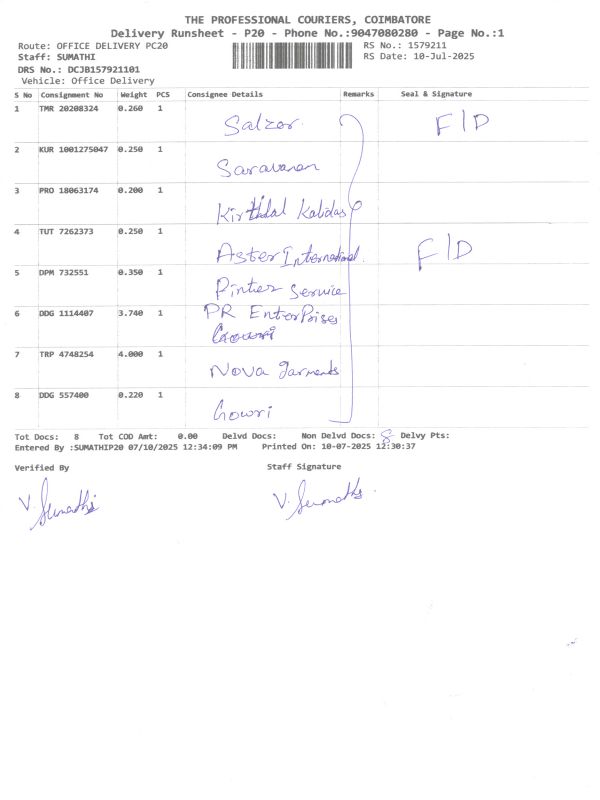 THE PROFESSIONAL COURIERS, COIMBATORE
Delivery Runsheet - P20 - Phone No.:9047080280 - Page No.:1
Route: OFFICE DELIVERY PC20 RS No.: 1579211
Staff: SUMATHI RS Date: 10-Jul-2025
DRS No.: DCJB157921101
Vehicle: Office Delivery
S No Consignment No Weight PCS Consignee Details Remarks Seal & Signature
1 TMR 20208324 0.260 1 Salzer. F/D
2 KUR 1001275047 0.250 1 Saravanan
3 PRO 18063174 0.200 1 Kalidas
4 TUT 7262373 0.250 1 Aster International. F/D
5 DPM 732551 0.350 1 Pinter Service
6 DDG 1114407 3.740 1 PR EnterPrises
Gowri
7 TRP 4748254 4.000 1 Nova garments
8 DDG 557400 0.220 1 Gowri
Tot Docs: 8 Tot COD Amt: 0.00 Delvd Docs: Non Delvd Docs: 8 Delvy Pts:
Entered By :SUMATHIP20 07/10/2025 12:34:09 PM Printed On: 10-07-2025 12:30:37
Verified By Staff Signature
V. Sumathi V. Sumathi.